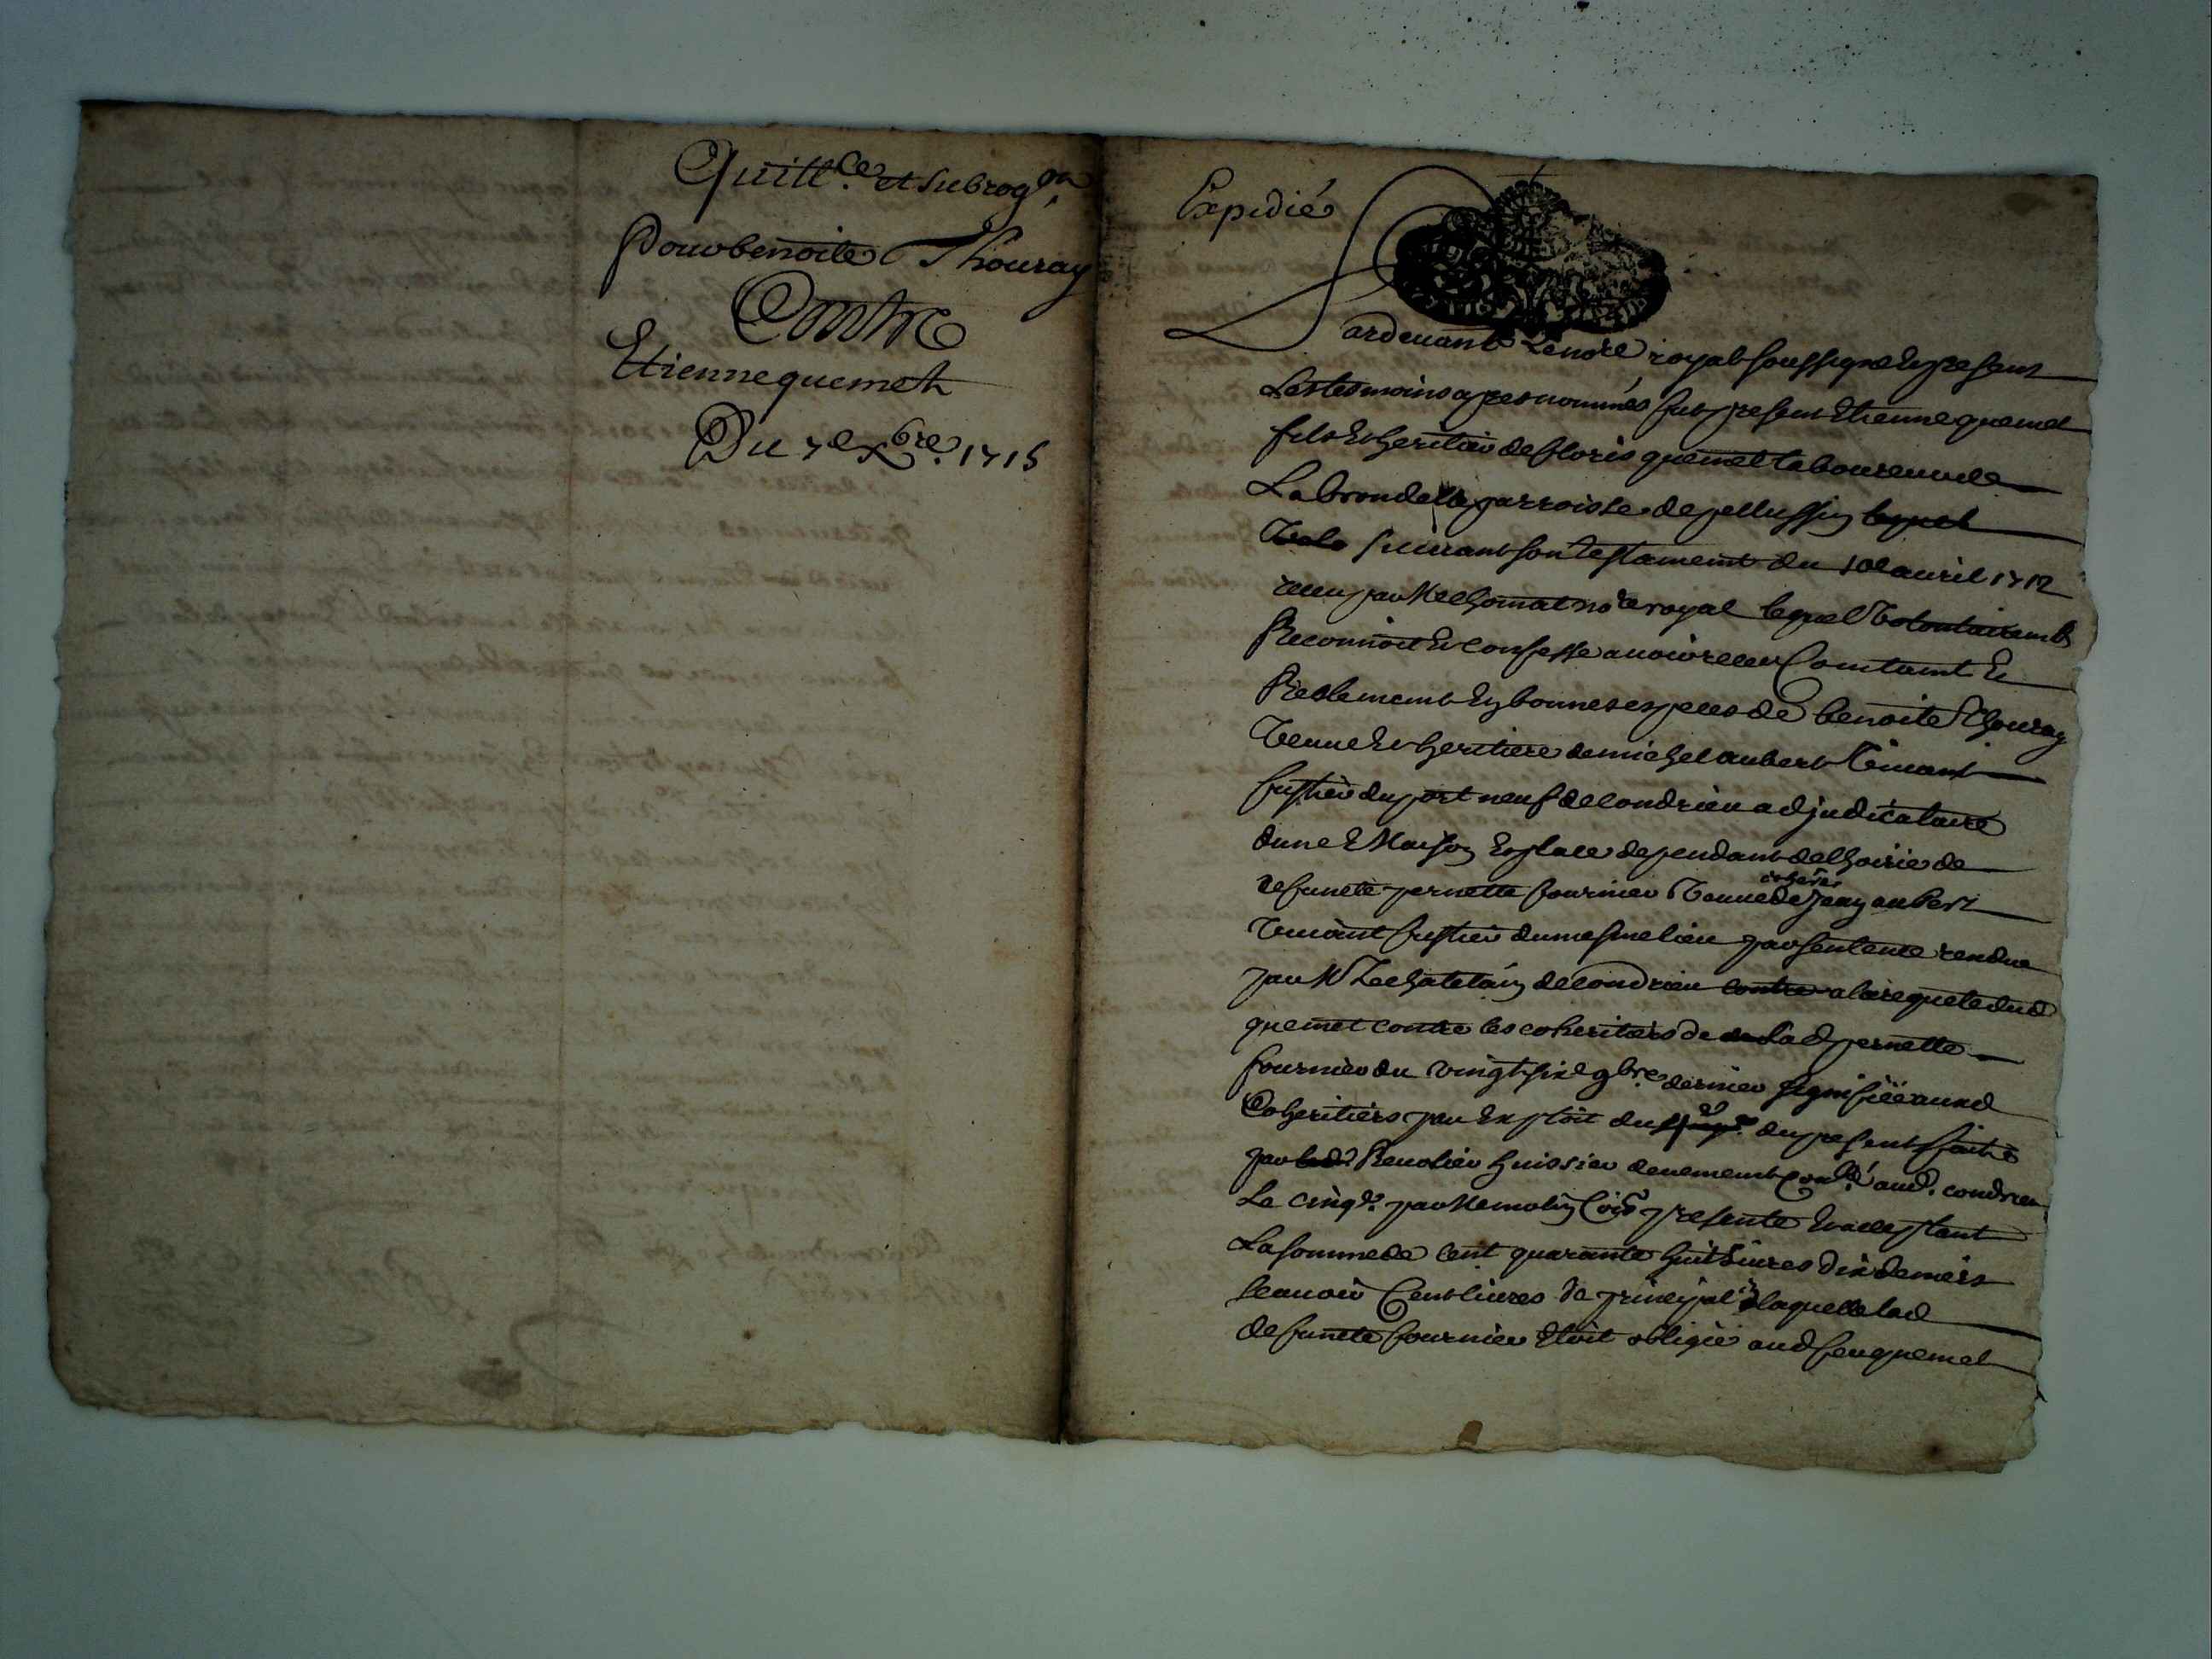 Quitt.ce et subrog.on
Pour benoite Thouray
Contre
Etienne quemet
Du 7e xbre. 1715
Expedié
Pardevant Le no.re royal soussigné En present
Les tesmoins apres nommés fut present Etienne quemet
fils Et heritier de floris quemet laboureur de
La brondelle parroisse de pellussin lequel
suivant son testament du 10e avril 1712
receu par Me thomas no.re royal lequel Volontairemt
Reconnoit Et confesse avoir receu Comtant Et
Reelement En bonnes especes de benoite Thouray
Veuve Et heritiere de michel aubert Vivant
fustier du port neuf de condrieu adjudicataire
dune Maison Et place dependant de lhoirie de
defuncte pernette fournier Veuve de Jean aubert
Vivant fustier du mesme lieu par sentence rendue
par Mr Le chatelain de condrieu contre a la requete dud
quemet contre les coheritiers de lad pernette
fournier du vingt sixe 9bre. dernier signifiée ausd
Coheritiers par Exploit du du present fait
par Renolier huissier deuement Con.llé aud. condrieu
Le cinqe. par Me molin Cois presente Et acceptant
La somme de cent quarante huit Livres dix deniers
scavoir Cent livres de principal a laquelle lad
defuncte fournier Etoit obligée aud feu quemet